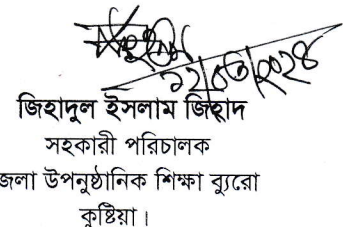 ১২/০৩/২০২৪
জিহাদুল ইসলাম জিহাদ
সহকারী পরিচালক
জলা উপনুষ্ঠানিক শিক্ষা ব্যুরো
কুষ্টিয়া।